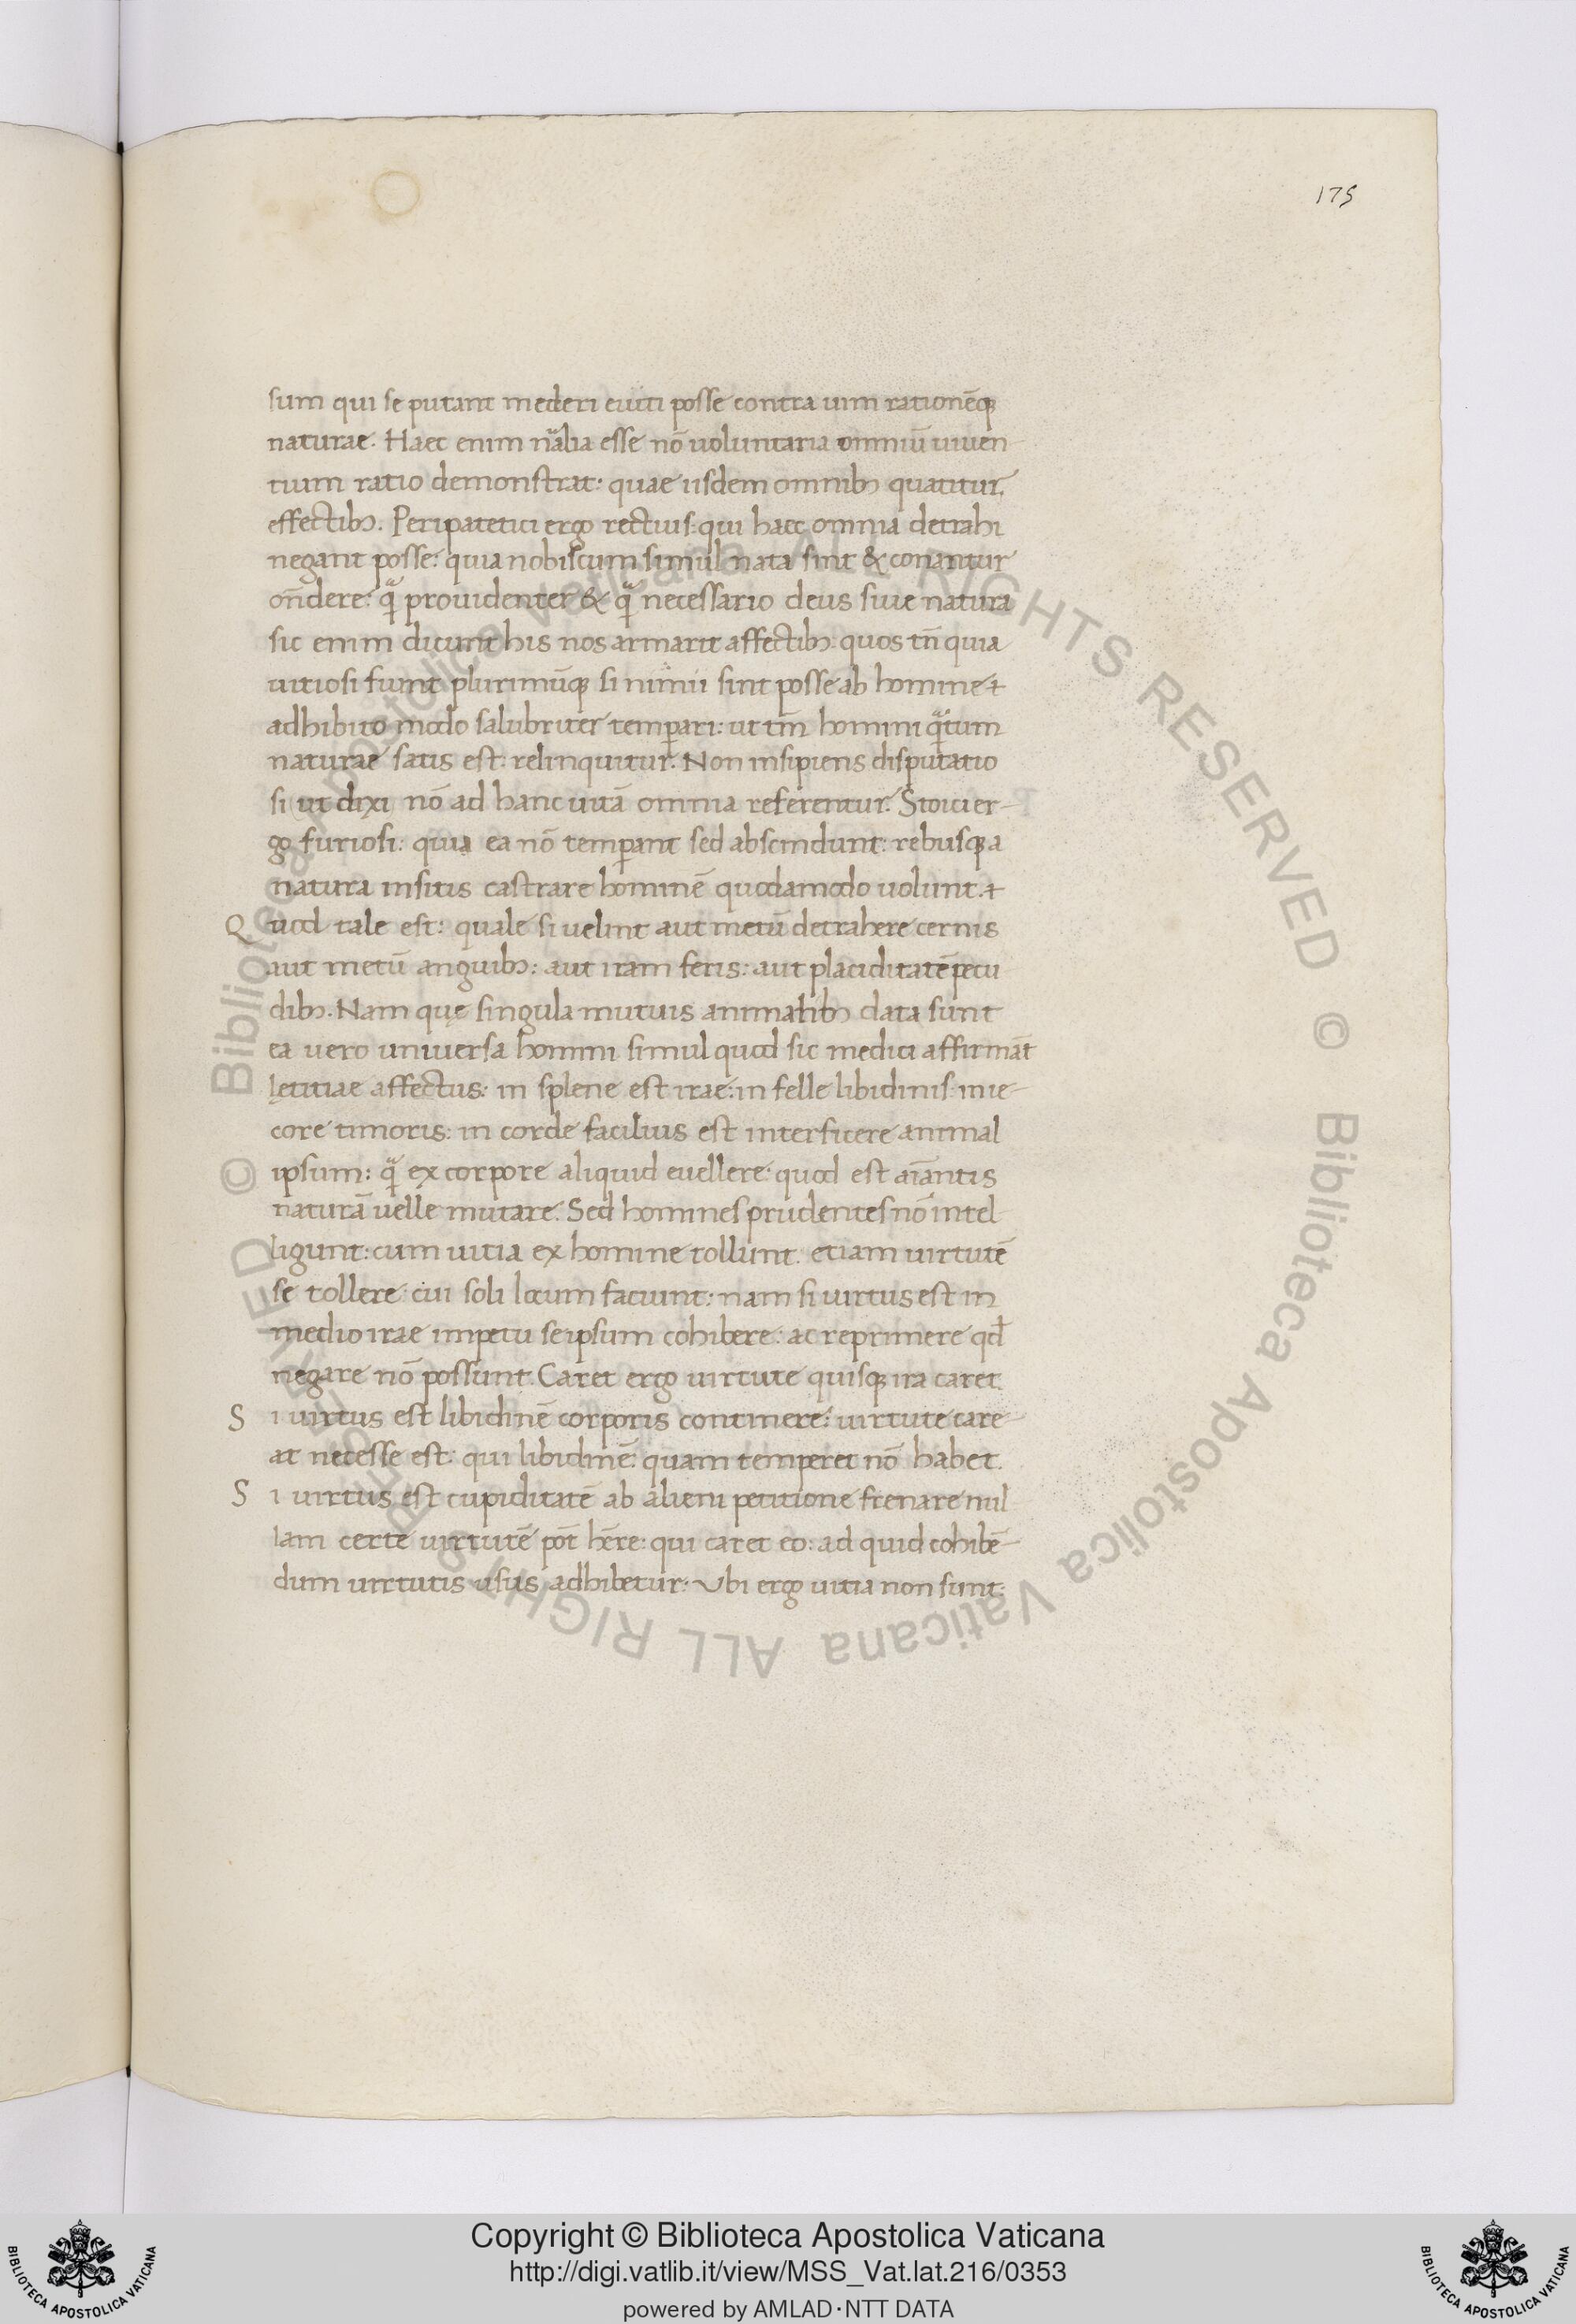 175
sum qui se putant mederi euiti posse contra uim rationēq;
naturae. Haec enim nãlia esse nõ voluntaria omniũ viuen
tium ratio demonstrat: quae iisdem omnibꝫ quatitur
effectibꝫ. Peripatetici ergo rectius: qui haec omnia detrahi
negant posse: quia nobiscum simul nata sint & conantur
oñdere: q̃ prouidenter & q̃ necessario deus siue natura
sic enim dicunt his nos armarit affectibꝫ: quos tñ quia
uitiosi fiunt plurimũq; si nimii sint posse ab homine
adhibito modo salubriter temꝑari: ut tm̃ homini q̃tum
naturae satis est: relinquitur. Non insipiens disputatio
si ut dixi nõ ad hanc uitã omnia referentur. Stoici er-
go furiosi: quia ea nõ temꝑant sed abscindunt: rebusq; a
natura insitis castrare hominẽ quodamodo uolunt.
Quod tale est: quale si uelint aut metũ detrahere cernis
aut metũ anguibꝫ: aut iram feris: aut placiditatẽ pecu
dibꝫ. Nam quę singula mutuis animalibꝫ data sunt
ea uero uniuersa homini simul quod sic medici affirmãt
lętitiae affectus: in splene est irae: in felle libidinis: in ie-
core timoris: in corde facilius est interficere animal
ipsum: q̃ ex corpore aliquid euellere: quod est aĩantis
naturã uelle mutare. Sed homines prudentes nõ intel
ligunt: cum uitia ex homine tollunt: etiam uirtutẽ
se tollere: cui soli locum faciunt: nam si uirtus est in
medio irae impetu seipsum cohibere: ac reprimere qđ
negare nõ possunt. Caret ergo uirtute quisq; ira caret.
Si uirtus est libidinẽ corporis continere: uirtute care-
at necesse est: qui libidinẽ: quam temperet nõ habet.
Si uirtus est cupiditatẽ ab alieni petitione frenare nul
lam certe uirtutẽ põt hẽre: qui caret eo: ad quid cohibẽ-
dum uirtutis usus adhibetur: Vbi ergo uitia non sunt:
© Biblioteca Apostolica Vaticana ALL RIGHTS RESERVED © Biblioteca Apostolica Vaticana ALL RIGHTS RESERVED
Copyright © Biblioteca Apostolica Vaticana
http://digi.vatlib.it/view/MSS_Vat.lat.216/0353
powered by AMLAD·NTT DATA
BIBLIOTECA APOSTOLICA VATICANA
BIBLIOTECA APOSTOLICA VATICANA